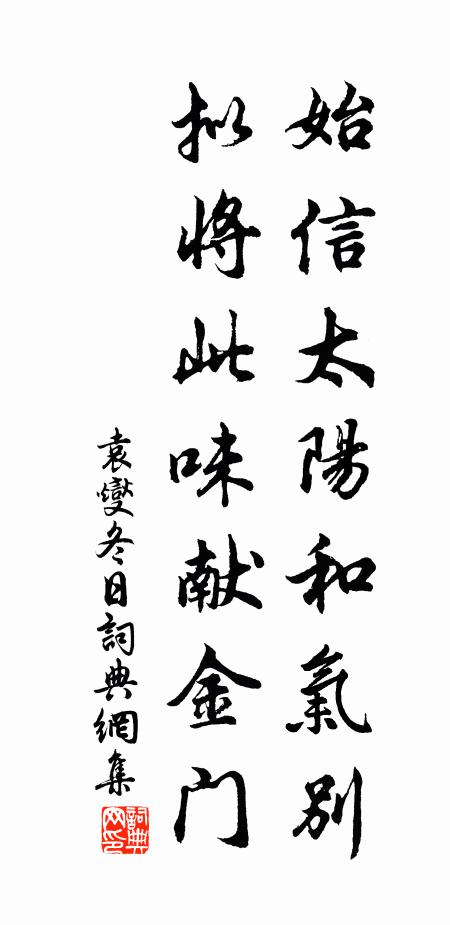 始信太陽和氣別
拟將此味献金门
袁燮冬日詞典網集
詞典网印